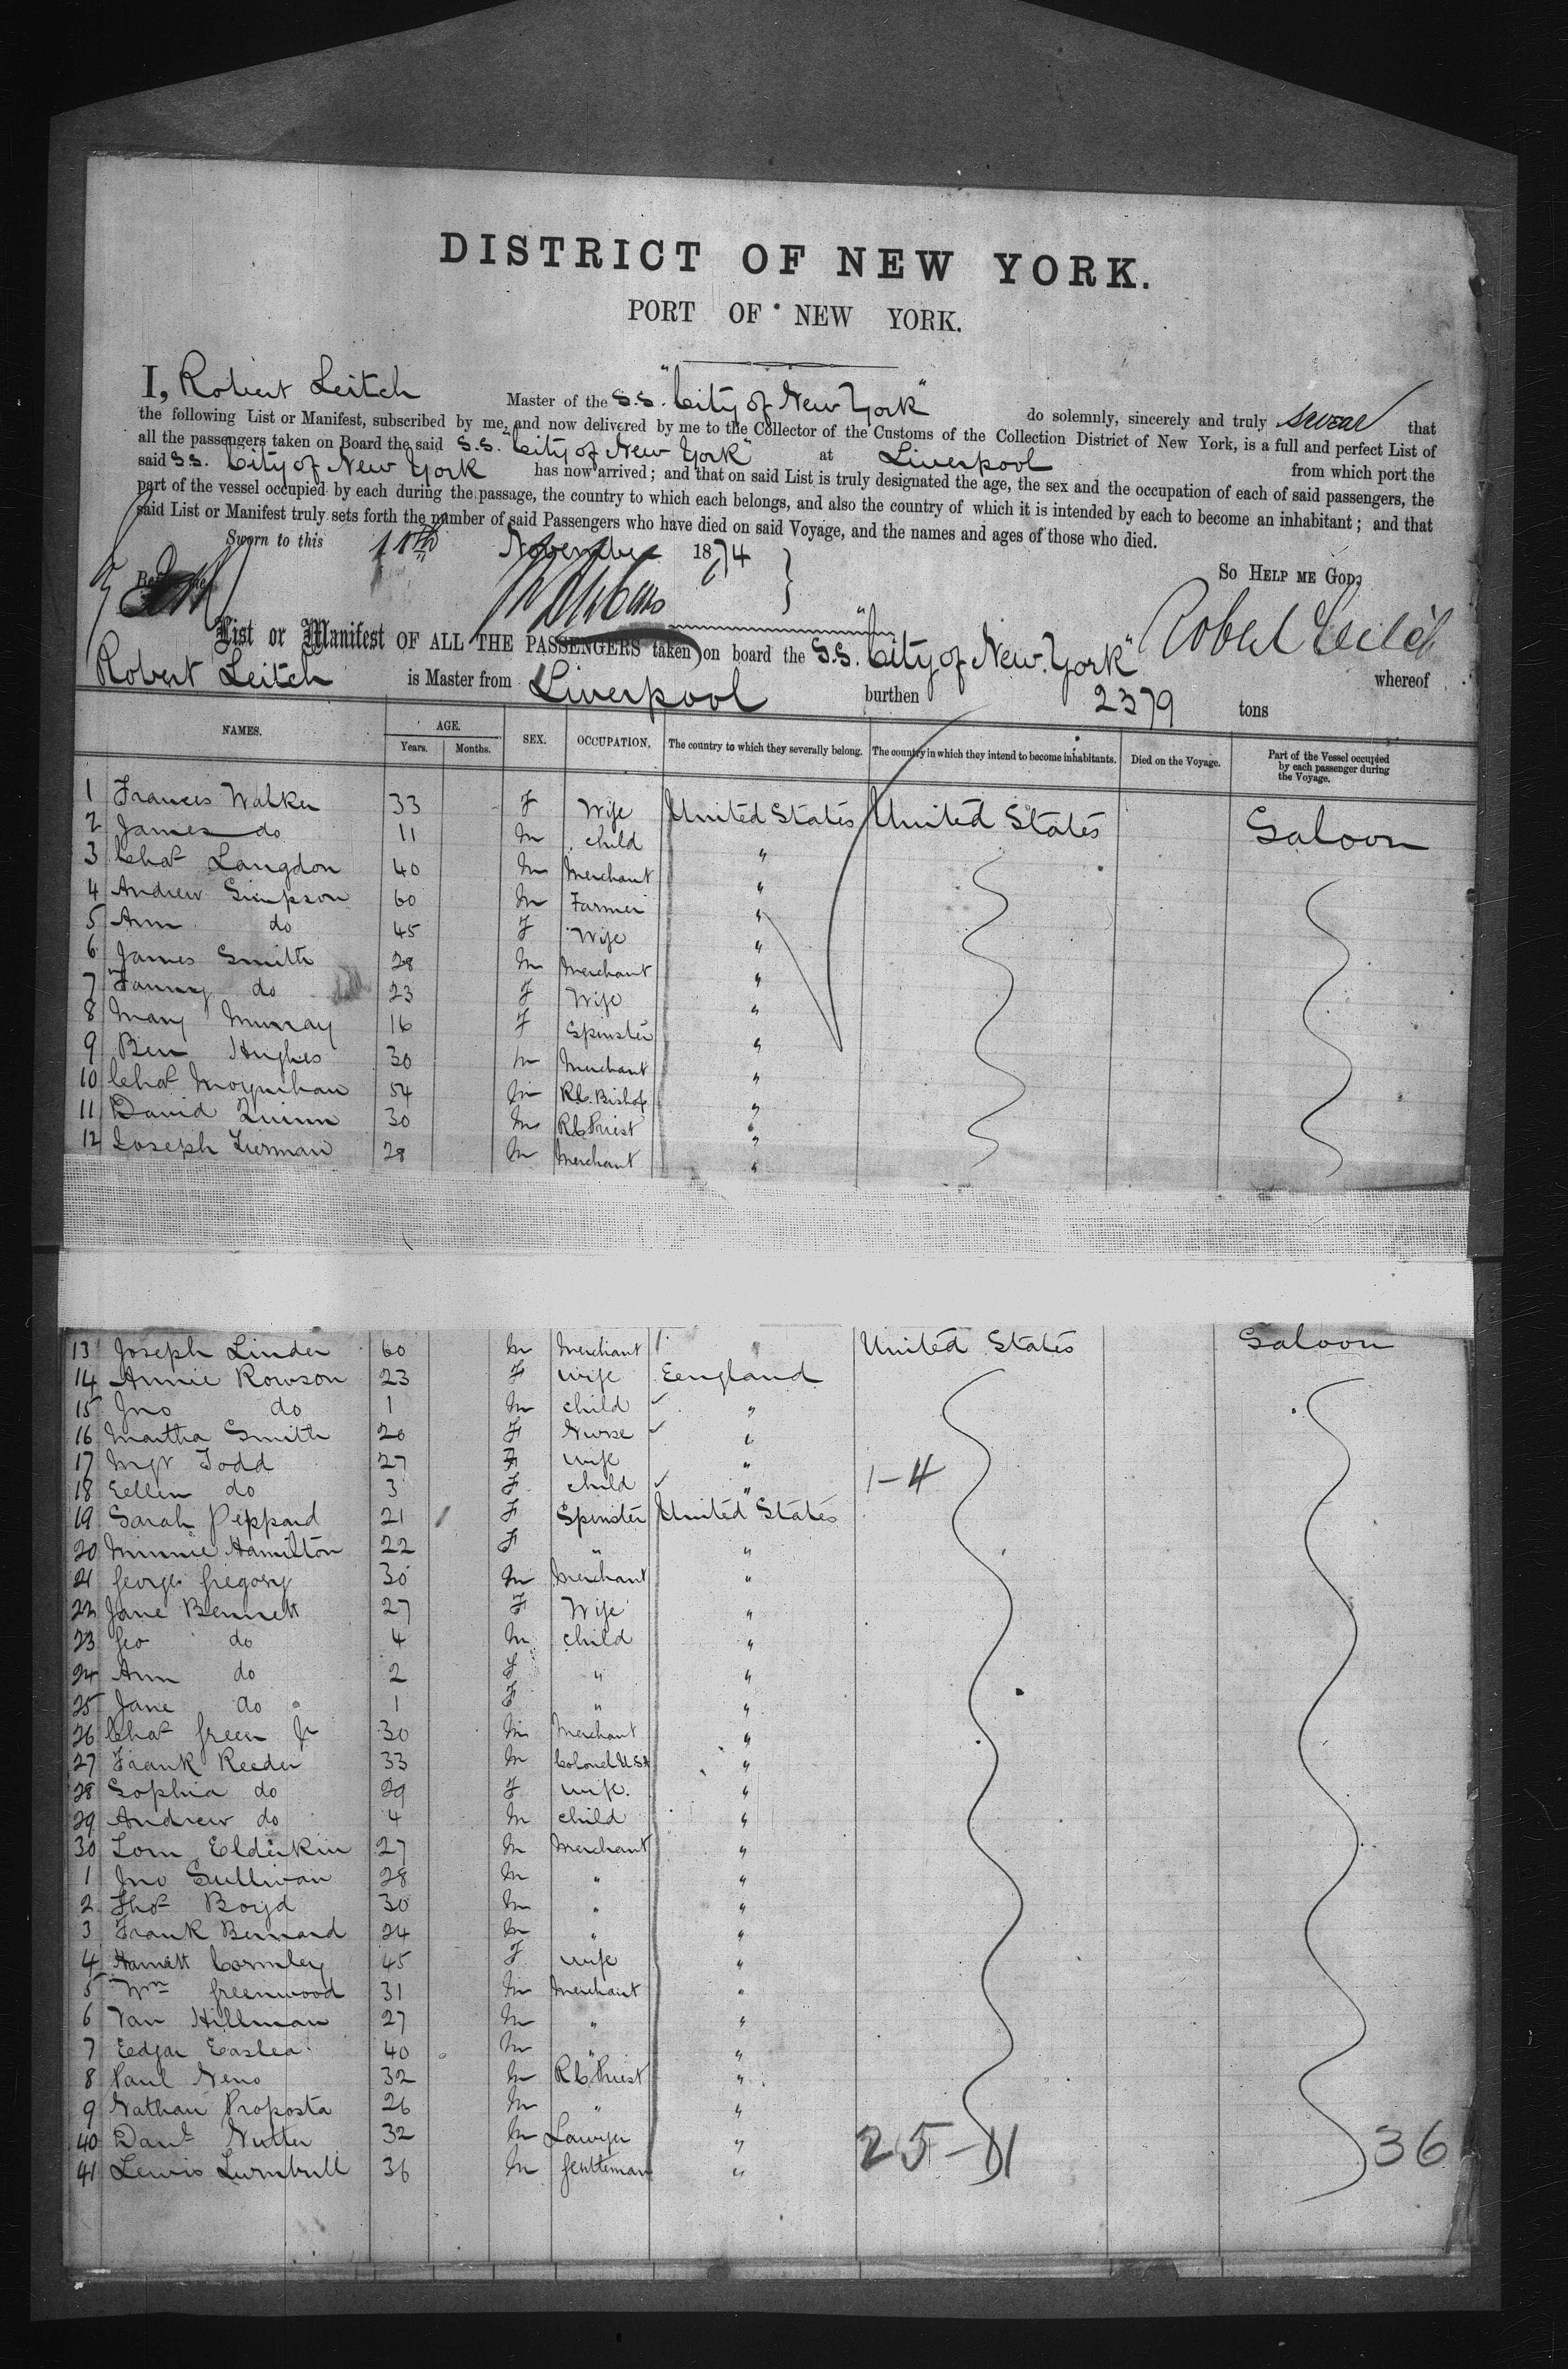 DISTRICT OF NEW YORK.
PORT OF NEW YORK.
I, Robert Leitch Master of the S.S. "City of New York" do solemnly, sincerely and truly swear that
the following List or Manifest, subscribed by me, and now delivered by me to the Collector of the Customs of the Collection District of New York, is a full and perfect List of
all the passengers taken on Board the said S.S. "City of New York" at Liverpool from which port the
said SS. City of New York has now arrived; and that on said List is truly designated the age, the sex and the occupation of each of said passengers, the
part of the vessel occupied by each during the passage, the country to which each belongs, and also the country of which it is intended by each to become an inhabitant; and that
said List or Manifest truly sets forth the number of said Passengers who have died on said Voyage, and the names and ages of those who died.
Sworn to this 11th November 1874
So Help me God,
Robert Leitch
List or Manifest OF ALL THE PASSENGERS taken on board the S.S. "City of New York" whereof
Robert Leitch is Master from Liverpool burthen 2379 tons
NAMES. AGE. Years. Months. SEX. OCCUPATION. The country to which they severally belong. The country in which they intend to become inhabitants. Died on the Voyage. Part of the Vessel occupied by each passenger during the Voyage.
1 Frances Walker 33 F Wife United States United States Saloon
2 James do 11 M child "
3 Chas Langdon 40 M Merchant "
4 Andrew Simpson 60 M Farmer "
5 Ann do 45 F Wife "
6 James Smith 28 M Merchant "
7 Fanny do 23 F Wife "
8 Mary Murray 16 F Spinster "
9 Ben Hughes 30 M Merchant "
10 Chas Moynihan 54 M R.C. Bishop "
11 David Quinn 30 M RC Priest "
12 Joseph 28 M Merchant "
13 Joseph Linder 60 M Merchant " United States Saloon
14 Annie Rowson 23 F wife Eengland
15 Jno do 1 M child "
16 Martha Smith 20 F Nurse "
17 Mgt Todd 27 F wife " 1-4
18 Eellen do 3 F child "
19 Sarah Peppard 21 F Spinster United States
20 Minnie Hamilton 22 F " "
21 George Gregory 30 M Merchant "
22 Jane Bennett 27 F Wife "
23 Geo do 4 M child "
24 Ann do 2 F " "
25 Jane do 1 F " "
26 Chas Green Jr 30 M Merchant "
27 Frank Reeder 33 M Colonel USA "
28 Sophia do 29 F wife. "
29 Andrew do 4 M child "
30 Lorn Elderkin 27 M Merchant "
1 Jno Sullivan 28 M " "
2 Thos Boyd 30 M " "
3 Frank Bernard 24 M " "
4 Harriett Cormley 45 F wife "
5 Wm Greenwood 31 M Merchant "
6 Van Hillman 27 M " "
7 Edgar Easlea 40 M " "
8 Paul Neno 32 M RC Priest "
9 Nathan Proposta 26 M " "
40 Danl Nutter 32 M Lawyer " 25-11 36
41 Lewis Turnbull 36 M Gentleman "